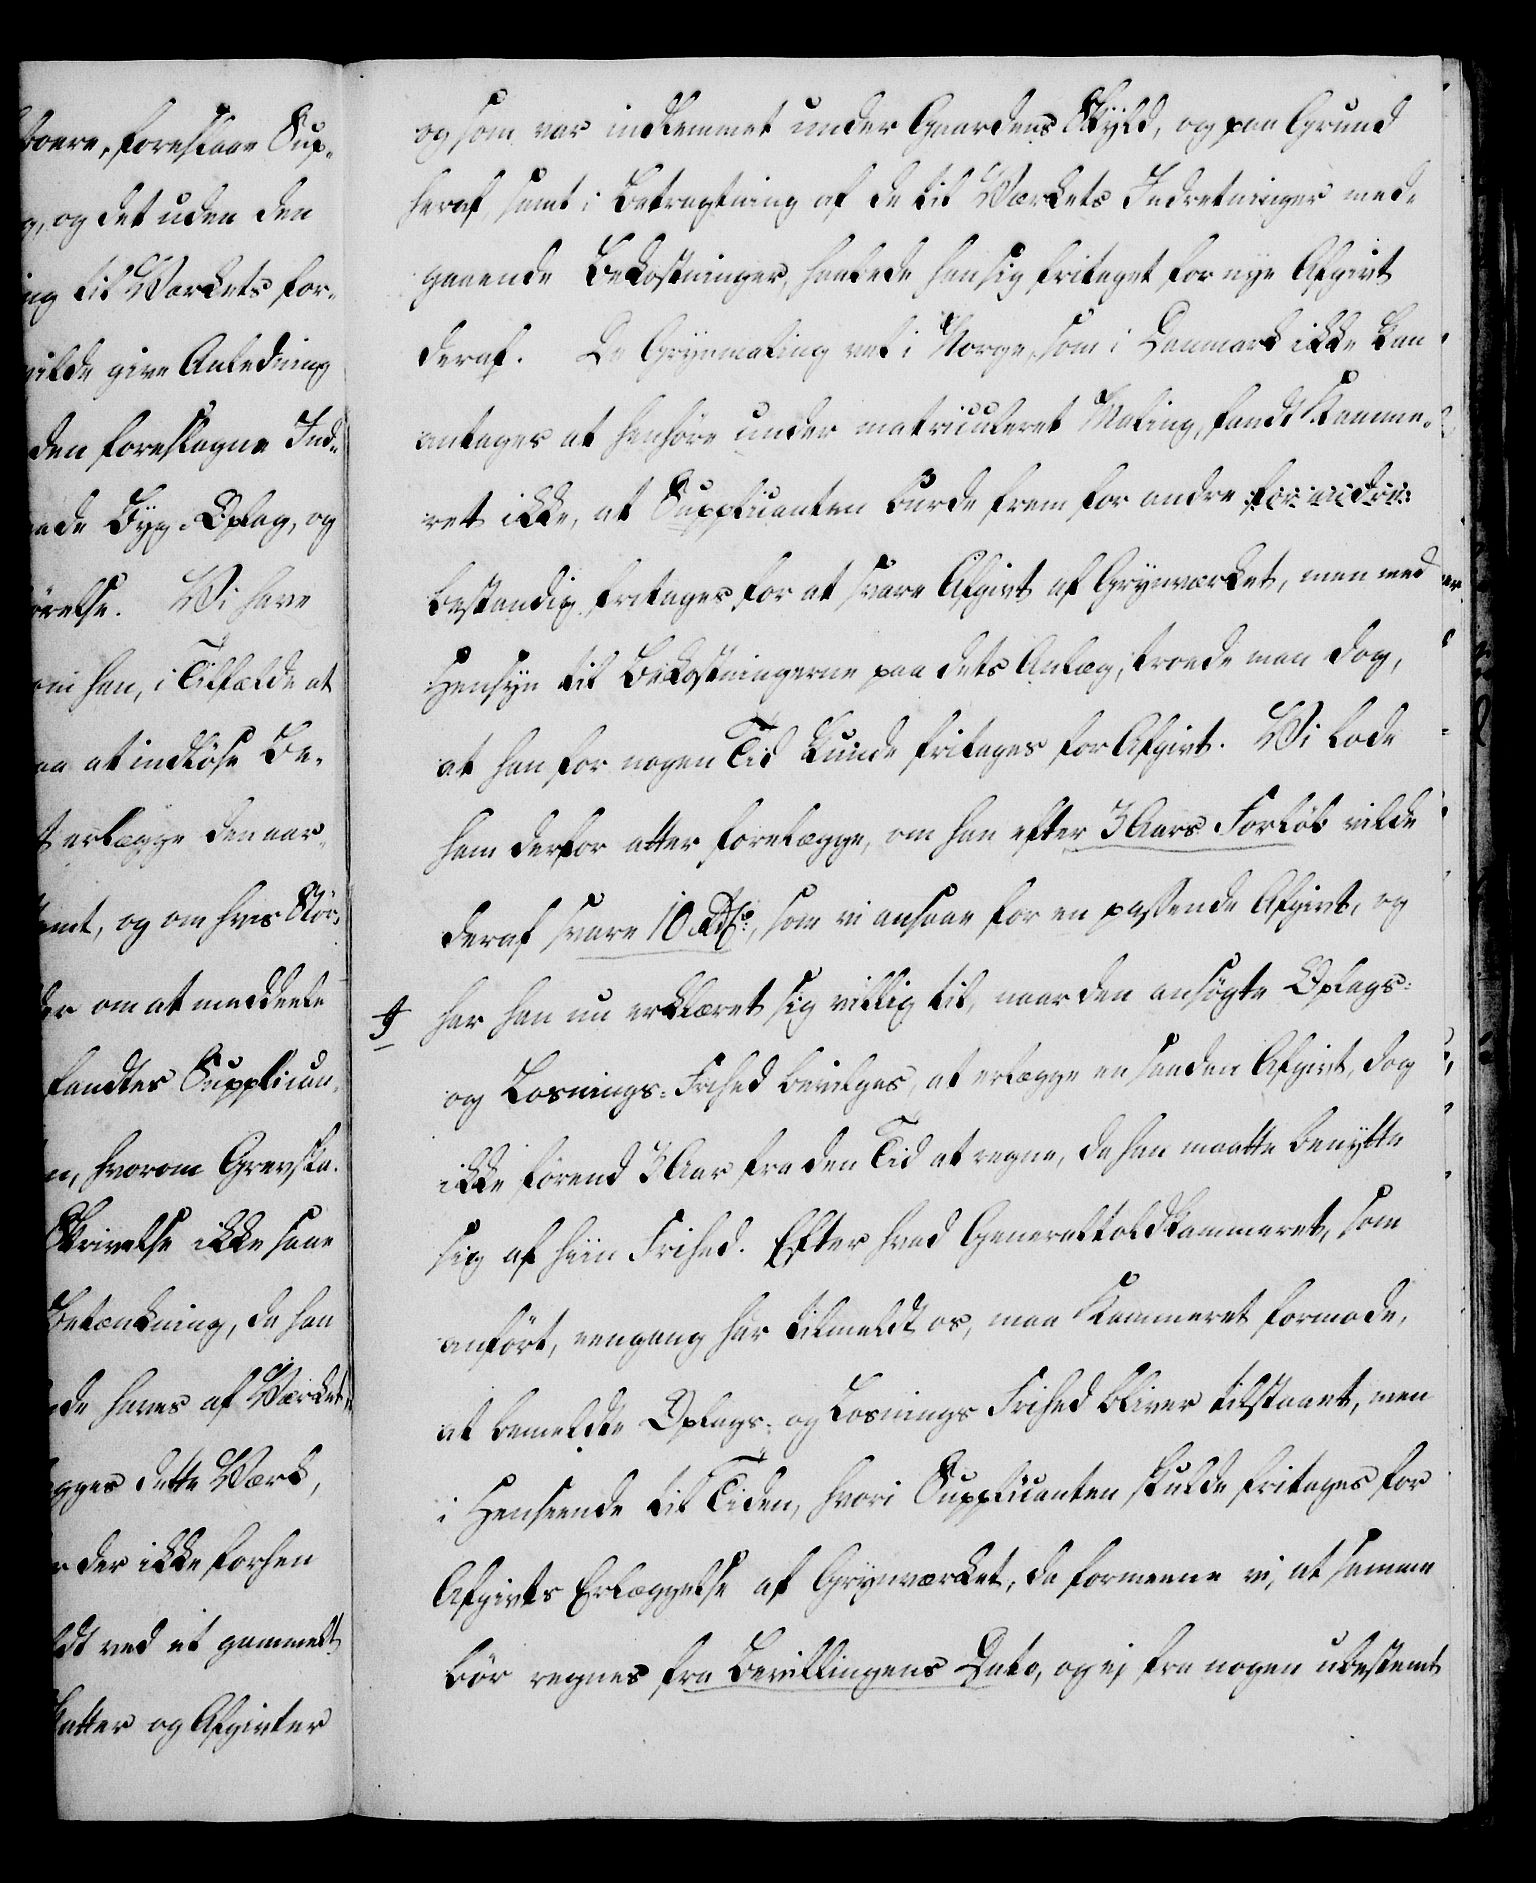 boere, foreslaae Sup-
og det uden den
ing til Værkets for-
vilde give Anledning
den foreslagne Ind-
Byg-Oplag, og
Vi have
han, i Tilfælde at
at indløse Be-
erlægge den aar-
og om hvis Stør-
om at meddeele
fandtes Supplican-
hvorom Grevska-
Skrivelse ikke saae
Betænkning, da han
haves af Værket,
dette Værk,
der ikke forhen
ved et gammelt
Skatter og Afgivter
og som var indlemmet under Gaardens Skyld, og paa Grund
heraf, samt i Betragtning af de til Værkets Indretninger med-
gaaende Bekostninger, haabede han sig fritaget for nye Afgivt
deraf. Da Grynmaling vel i Norge, som i Danmark ikke kan
antages at henhøre under matriculeret Maling, fandt Kamme-
ret ikke, at Supplicanten burde frem for andre
bestandig fritages for at svare Afgivt af Grynværket, men med
Hensyn til Bekostningerne paa dets Anlæg, troede man dog,
at han for nogen Tid kunde fritages for Afgivt. Vi lode
ham derfor atter forelægge, om han efter 3 Aars Forløb vilde
deraf svare 10 Rd., som vi ansaae for en passende Afgivt, og
har han nu erklæret sig villig til, naar den ansøgte Oplags-
og Losnings-Frihed bevilges, at erlægge en saadan Afgivt, dog
ikke førend 3 Aar fra den Tid at regne, da han maatte benytte
sig af hiin Frihed. Efter hvad Generaltoldkammeret, som
anført, eengang har tilmeldt os, maa Kammeret formode,
at bemeldte Oplags- og Losnings Frihed bliver tilstaaet, men
i Henseende til Tiden, hvori Supplicanten skulde fritages for
Afgivts Erlæggelse af Grynværket, da formeene vi, at samme
bør regnes fra Bevillingens Dato, og ej fra nogen ubestemt